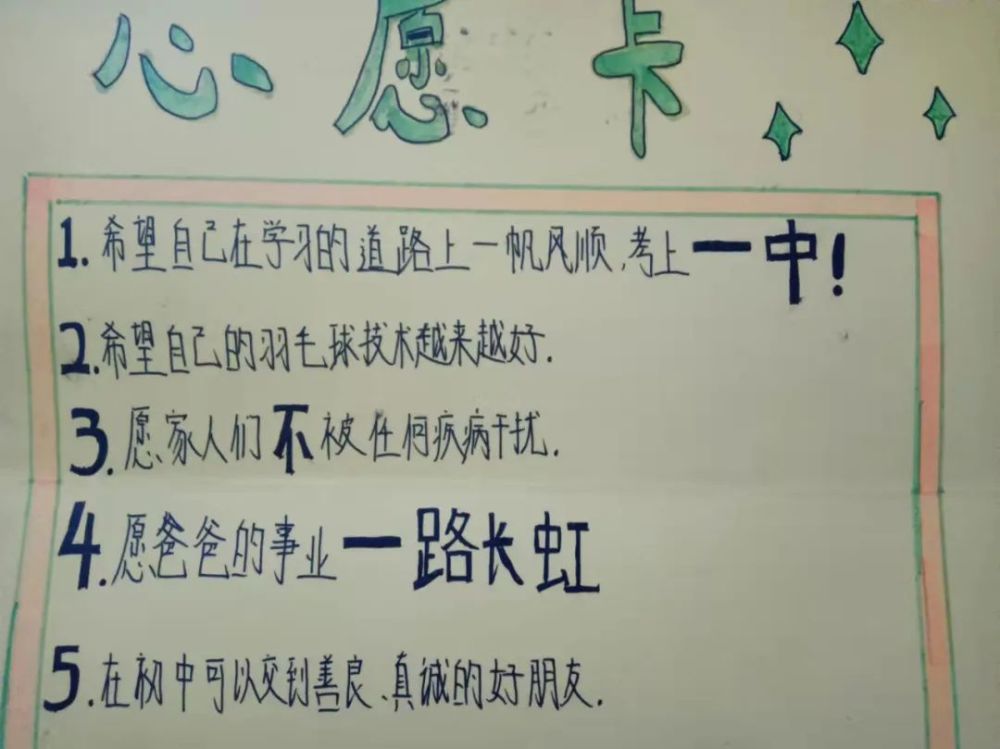 心愿卡
1.希望自己在学习的道路上一帆风顺,考上一中!
2.希望自己的羽毛球技术越来越好.
3.愿家人们不被任何疾病干扰.
4.愿爸爸的事业一路长虹
5.在初中可以交到善良、真诚的好朋友.